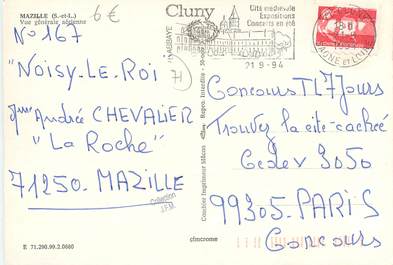 MAZILLE (S.-et-L.)
Vue générale aérienne
6 €
N° 167
"NOISY-LE-ROI
71
Mme André CHEVALIER
"La Roche"
71250. MAZILLE
Collection
E 71.290.99.2.0660
Cluny
ABBAYE
Cité médiévale
Expositions
Concerts en été
21.9-94
18H
SAONE ET LOIRE
Combier Imprimeur Mâcon
cimcrome
Concours TL7 Jours
Trouvez la cité cachée
Cedex 3050
99305. PARIS
Concours